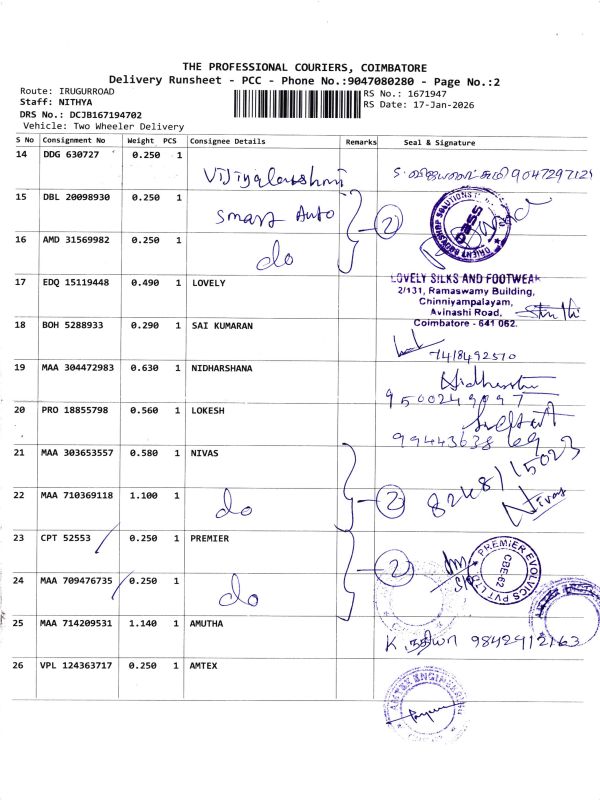 THE PROFESSIONAL COURIERS, COIMBATORE
Delivery Runsheet - PCC - Phone No.:9047080280 - Page No.:2
Route: IRUGURROAD
Staff: NITHYA
DRS No.: DCJB167194702
Vehicle: Two Wheeler Delivery
RS No.: 1671947
RS Date: 17-Jan-2026
S No Consignment No Weight PCS Consignee Details Remarks Seal & Signature
14 DDG 630727 0.250 1 Vijiyalakshmi 9047297124
15 DBL 20098930 0.250 1 Smart Auto 2
16 AMD 31569982 0.250 1 do
17 EDQ 15119448 0.490 1 LOVELY
LOVELY SILKS AND FOOTWEAR
2/131, Ramaswamy Building,
Chinniyampalayam,
Avinashi Road,
Coimbatore - 641 062.
18 BOH 5288933 0.290 1 SAI KUMARAN
7418492570
19 MAA 304472983 0.630 1 NIDHARSHANA
20 PRO 18855798 0.560 1 LOKESH
21 MAA 303653557 0.580 1 NIVAS
22 MAA 710369118 1.100 1 do 2 8248115023
Nivas
23 CPT 52553 0.250 1 PREMIER 2
PREMIER EVOLVICS PVT LTD
CBE-62
24 MAA 709476735 0.250 1 do
25 MAA 714209531 1.140 1 AMUTHA
K. நதியா 9842912163
26 VPL 124363717 0.250 1 AMTEX